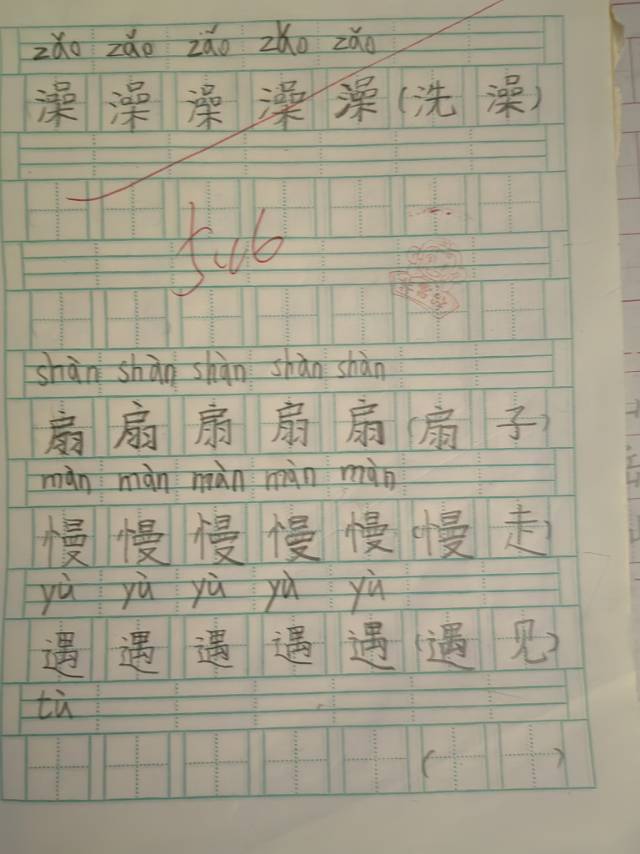 zǎo zǎo zǎo zǎo zǎo
澡 澡 澡 澡 澡 (洗 澡)
5.16
shàn shàn shàn shàn shàn
扇 扇 扇 扇 扇 (扇 子)
màn màn màn màn màn
慢 慢 慢 慢 慢 (慢 走)
yù yù yù yù yù
遇 遇 遇 遇 遇 (遇 见)
tù
( )